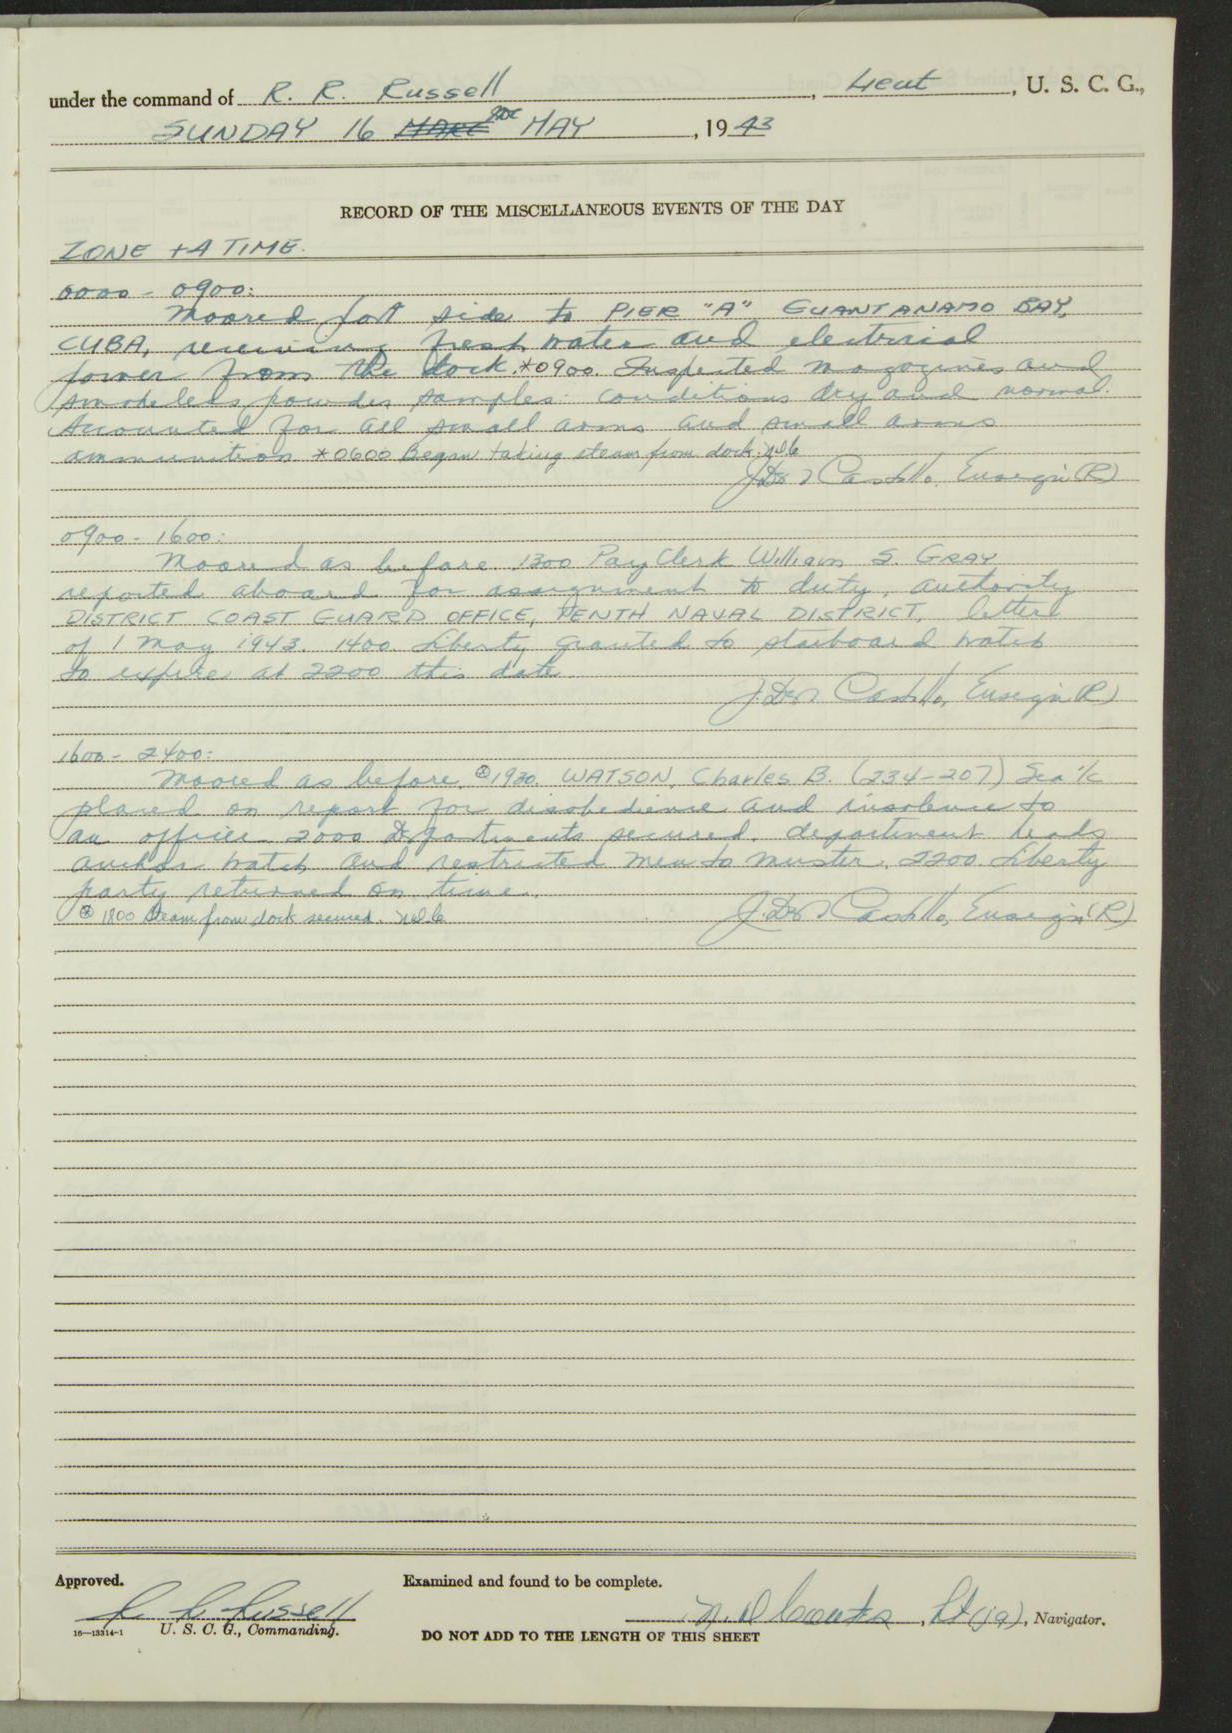 under the command of R. R. Russell, Lieut, U. S. C. G.,
SUNDAY 16 MAY, 1943
RECORD OF THE MISCELLANEOUS EVENTS OF THE DAY
ZONE +4 TIME.
0000 - 0900:
Moored port side to PIER "A", GUANTANAMO BAY,
CUBA, receiving fresh water and electrical
power from the dock. *0900. Inspected magazines and
smokeless powder samples: conditions dry and normal.
Accounted for all small arms and small arms
ammunition *0600 Began taking steam from dock.
Castillo, Ensign (R)
0900 - 1600:
Moored as before. 1300 Pay Clerk William S. GRAY
reported aboard for assignment to duty, authority
DISTRICT COAST GUARD OFFICE, TENTH NAVAL DISTRICT, letter
of 1 May 1943. 1400. Liberty granted to starboard watch
to expire at 2200 this date.
Castillo, Ensign (R)
1600 - 2400:
Moored as before. ⊗1930. WATSON, Charles B. (234-207) Sea 1/c
placed on report for disobedience and insolence to
an officer. 2000 Departments secured. department heads
anchor watch and restricted men to muster. 2200. Liberty
party returned on time.
⊗ 1800 Steam from dock secured.
Castillo, Ensign (R)
Approved. Examined and found to be complete.
R. R. Russell
U. S. C. G., Commanding.
Lt(jg), Navigator.
16—13314-1
DO NOT ADD TO THE LENGTH OF THIS SHEET